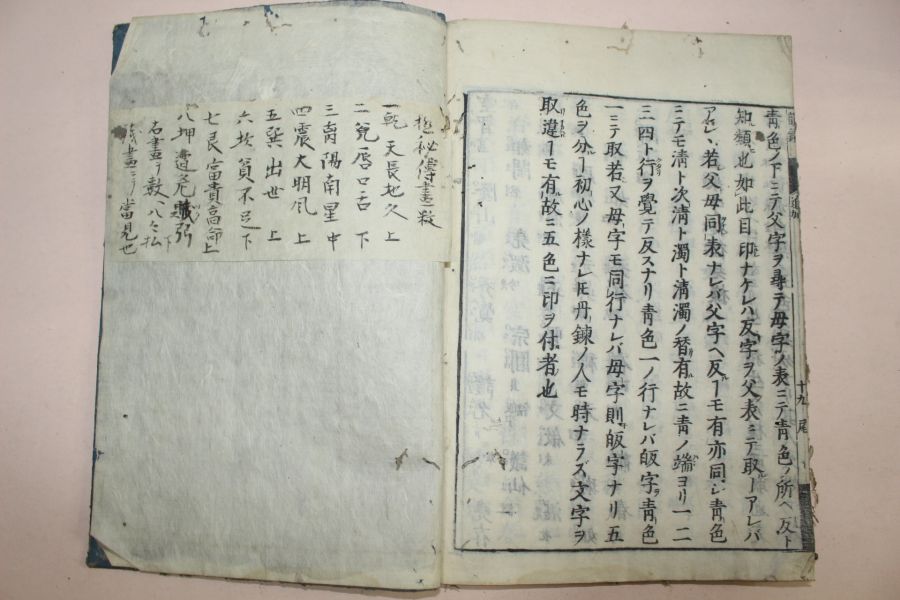 青色ノ下ニテ父字ヲ尋テ母字ノ表ニテ青色ノ所ヘ反ト
知類也如此目印ナケレハ反字ヲ父表ニテ取ーアレバ
アレ、若父母同表ナレバ父字ヘ反ーモ有亦同シ青色
ニテモ清ト次清ト濁ト清濁ノ替有故ニ青ノ端ヨリ一二
三四ト行ヲ覺テ反スナリ青色一ノ行ナレバ皈字ヲ青色
一ニテ取若又母字モ同行ナレバ母字則皈字ナリ五
色ヲ分ー初心ノ樣ナレ𪜈丹鍊ノ人モ時ナラズ文字ヲ
取違ーモ有故ニ五色ニ印ヲ付者也
十九 尾
秘傳畫数
一乾 天長地久 上
二兌 唇口舌 下
三离 陽南星 中
四震 大明風 上
五巽 出世 上
六坎 貧不足 下
七艮 富貴高命 上
八坤 下
名畫ノ數八々払
畫ニ當見也